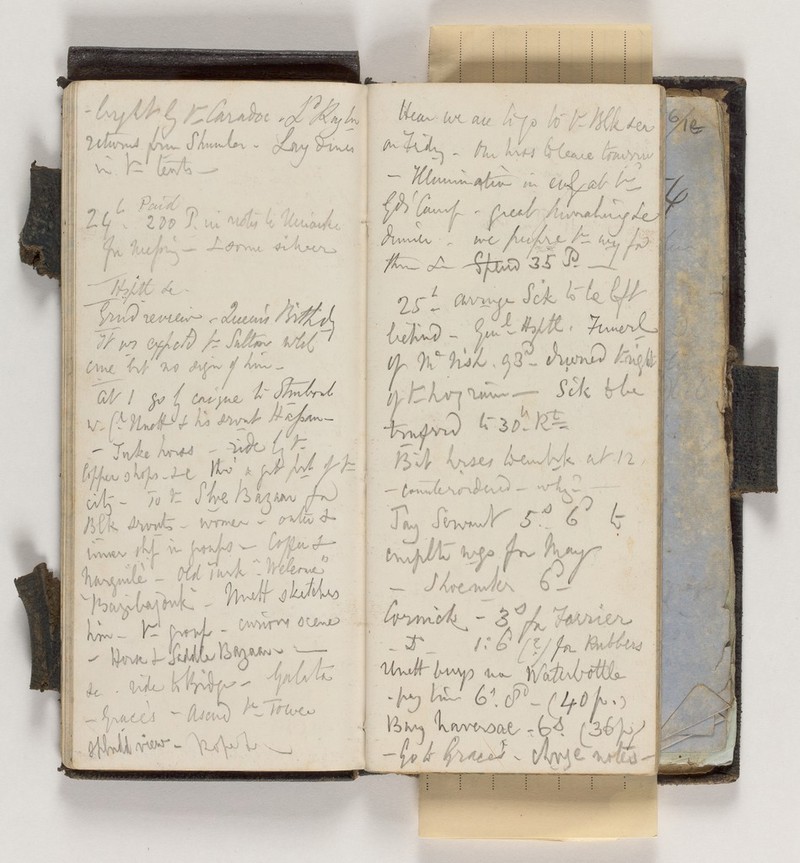 - bright by Yr Caradoc - Ld Raglan
returns from Shumla - Lay dines
in Yr tents -
Paid
24th 200 P. in notes to
for messing - & some silver
Hsptl &c
Grand review - Queen's Birthdy
It ws expectd Yr Sultan wld
come but no sign of him -
At 1 go by caique to Stmboul
w. Cn. Unett & his servnt Hassan -
- Take horses - ride by Yr
Copper shops - &c thro' a gt part of Yr
city - To Yr Slve Bazaar for
Blk servnts - women - outer &
inner in groups - Coffee &
Narguilè - Old Turk "Welcome"
"Bazibazouk" - Unett sketches
him - Yr group - curious scene
- Horse & Saddle Bazaar -
&c. ride to Bridge - Galata
- Grace's - Ascend Yr Tower
splendd view -
Hear we are to go to Yr Blk sea
on Fridy - Our hrses to leave tomorrow
- Illumination in at Yr
Gds' Camp - great &c
dinner - we prepre Yr way for
them &c Spend 35 P. -
25th arrange Sick to be left
behind - Genl Hsptl. Funeral
of Mr Nish. 93rd drowned
- Sick to be
to 30th Rt
Bat horses to embrk at 12.
- counterordered - why? -
Pay Servant 5s 6d to
complte wgs for May
- Shoemker 6d -
Cormick - 3s for Farrier
- Do - 1:6 (?) for Rubbers
Unett buys me Waterbottle
- pay him 6s. 8d - (40 p.)
Buy haversac - 6s. (36 p.)
- Go to Grace's - chnge notes -
6/12